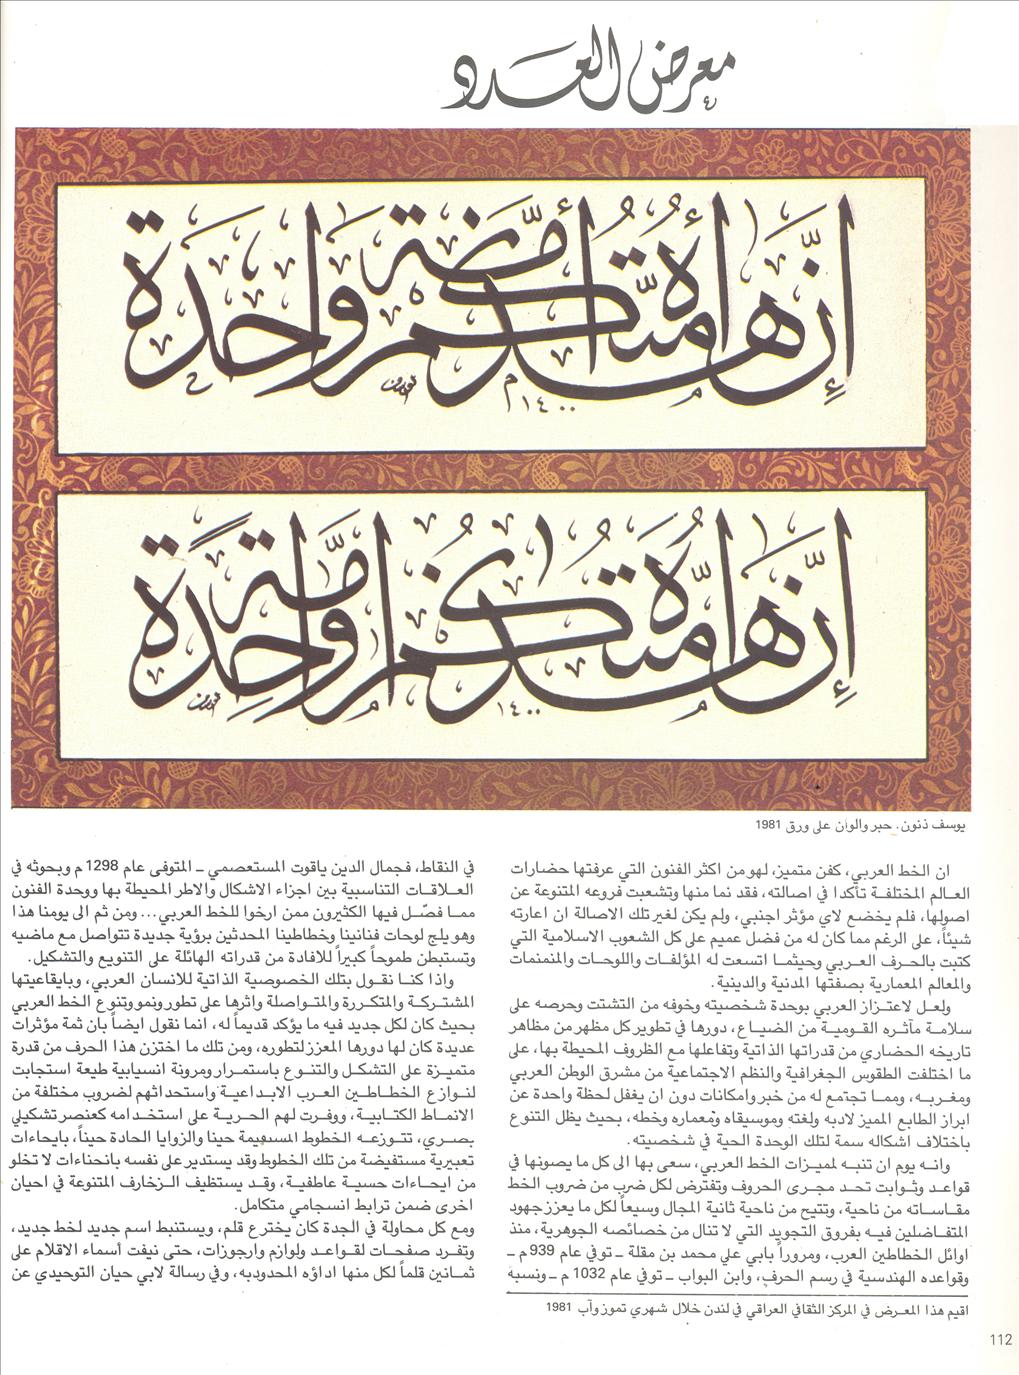 معرض العدد
إنّ هذه أمّتكم أمّة واحدة
١٤٠٠
إنّ هذه أمّتكم أمّة واحدةً
١٤٠٠
يوسف ذنون. حبر والوان على ورق 1981
ان الخط العربي، كفن متميز، لهو من اكثر الفنون التي عرفتها حضارات
العالم المختلفة تأكدا في اصالته، فقد نما منها وتشعبت فروعه المتنوعة عن
اصولها، فلم يخضع لاي مؤثر اجنبي، ولم يكن لغير تلك الاصالة ان اعارته
شيئاً، على الرغم مما كان له من فضل عميم على كل الشعوب الاسلامية التي
كتبت بالحرف العربي وحيثما اتسعت له المؤلفات واللوحات والمنمنمات
والمعالم المعمارية بصفتها المدنية والدينية.
ولعل لاعتزاز العربي بوحدة شخصيته وخوفه من التشتت وحرصه على
سلامة مآثره القومية من الضياع، دورها في تطوير كل مظهر من مظاهر
تاريخه الحضاري من قدراتها الذاتية وتفاعلها مع الظروف المحيطة بها، على
ما اختلفت الطقوس الجغرافية والنظم الاجتماعية من مشرق الوطن العربي
ومغربه، ومما يجتمع له من خبر وامكانات دون ان يغفل لحظة واحدة عن
ابراز الطابع المميز لادبه ولغته وموسيقاه ومعماره وخطه، بحيث يظل التنوع
باختلاف اشكاله سمة لتلك الوحدة الحية في شخصيته.
وانه يوم ان تنبه لمميزات الخط العربي، سعى بها الى كل ما يصونها في
قواعد وثوابت تحد مجرى الحروف وتفترض لكل ضرب من ضروب الخط
مقاساته من ناحية، وتتيح من ناحية ثانية المجال وسيعاً لكل ما يعزز جهود
المتفاضلين فيه بفروق التجويد التي لا تنال من خصائصه الجوهرية، منذ
اوائل الخطاطين العرب، ومروراً بابي علي محمد بن مقلة ـ توفي عام 939 م ـ
وقواعده الهندسية في رسم الحرف، وابن البواب ـ توفي عام 1032 م ـ ونسبه
اقيم هذا المعرض في المركز الثقافي العراقي في لندن خلال شهري تموز وآب 1981
في النقاط، فجمال الدين ياقوت المستعصمي ـ المتوفى عام 1298 م وبحوثه في
العلاقات التناسبية بين اجزاء الاشكال والاطر المحيطة بها ووحدة الفنون
مما فصّل فيها الكثيرون ممن ارخوا للخط العربي... ومن ثم الى يومنا هذا
وهو يلج لوحات فنانينا وخطاطينا المحدثين برؤية جديدة تتواصل مع ماضيه
وتستبطن طموحاً كبيراً للافادة من قدراته الهائلة على التنويع والتشكيل.
واذا كنا نقول بتلك الخصوصية الذاتية للانسان العربي، وبايقاعيتها
المشتركة والمتكررة والمتواصلة واثرها على تطور ونمو وتنوع الخط العربي
بحيث كان لكل جديد فيه ما يؤكد قديماً له، انما نقول ايضاً بان ثمة مؤثرات
عديدة كان لها دورها المعزز لتطوره، ومن تلك ما اختزن هذا الحرف من قدرة
متميزة على التشكل والتنوع باستمرار ومرونة انسيابية طيعة استجابت
لنوازع الخطاطين العرب الابداعية واستحداثهم لضروب مختلفة من
الانماط الكتابية، ووفرت لهم الحرية على استخدامه كعنصر تشكيلي
بصري، تتوزعه الخطوط المستقيمة حينا والزوايا الحادة حيناً، بايحاءات
تعبيرية مستفيضة من تلك الخطوط وقد يستدير على نفسه بانحناءات لا تخلو
من ايحاءات حسية عاطفية، وقد يستظيف الزخارف المتنوعة في احيان
اخرى ضمن ترابط انسجامي متكامل.
ومع كل محاولة في الجدة كان يخترع قلم، ويستنبط اسم جديد لخط جديد،
وتفرد صفحات لقواعد ولوازم وارجوزات، حتى نيفت أسماء الاقلام على
ثمانين قلماً لكل منها اداؤه المحدود به، وفي رسالة لابي حيان التوحيدي عن
112